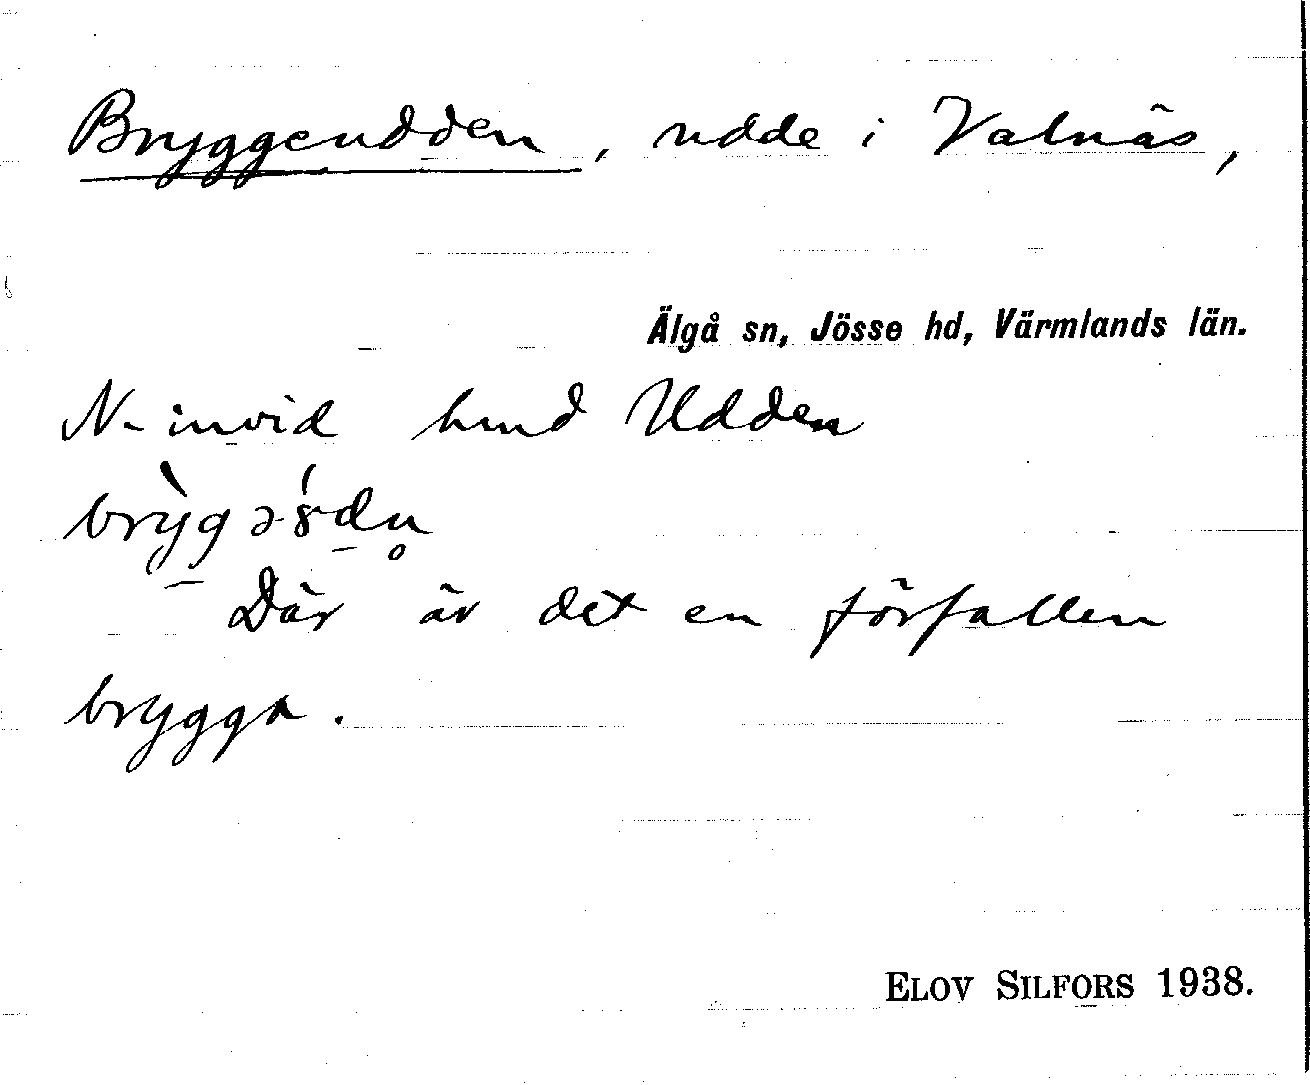 Bryggeudden, udde i Valnäs,
Älgå sn, Jösse hd, Värmlands län.
N. invid hmd Udden
Där är det en förfallen
brygga.
ELOV SILFORS 1938.